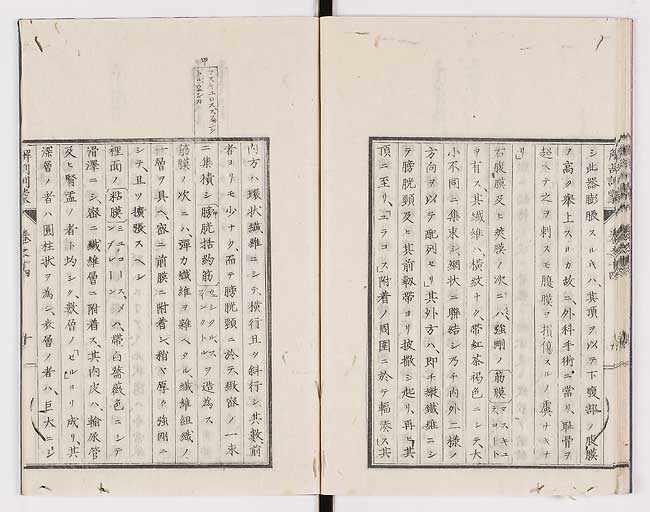 シ此器膨脹スルキハ、其頂ヲ以テ下腹部ノ腹膜
ヲ高ク牽上スルカ故ニ外科手術ニ當リ、耻骨ヲ
超ヘテ之ヲ刺スモ腹膜ヲ損傷スルノ虞ナキナ
リ
右腹膜及ヒ莢膜ノ次ニハ強剛ノ筋膜
ヲ有ス、其纖維ハ橫紋ナク、帶紅茶褐色ニシテ、大
小不同ニ集束シ、網狀ニ聯結シ乃チ內外二樣ノ
方向ヲ以テ配列セリ其外方ハ、即チ縱纖維ニシ
テ膀胱頸及ヒ其前靱帶ヨリ披撒シ起リ、再ヒ其
頂ニ至リ、「ユラコス」附着ノ周圍ニ於テ輻湊ス其
內方ハ環狀纖維ニシテ、橫行且ツ斜行シ其數前
者ヨリモ少ナク、而テ膀胱頸ニ於テ緻密ノ一束
ニ集積シ膀胱括約筋ヲ造爲ス
筋膜ノ次ニハ、彈力纖維ヲ雜ヘタル、纖維組織ノ
一層ヲ具ヘ、密ニ前膜ニ附着シ、稍ヤ厚ク強剛ニ
シテ、且ツ擴張スヘシ
裡面ノ粘膜ハ、帶白薔薇色ニシテ
滑澤ニシ、密ニ纖維層ニ附着ス、其內皮ハ、輸尿管
及ヒ腎盂ノ者ト均シク、數層ノ「セルヨリ成リ、其
深層ノ者ハ圓柱狀ヲ爲シ、表層ノ者ハ、巨大ニシ